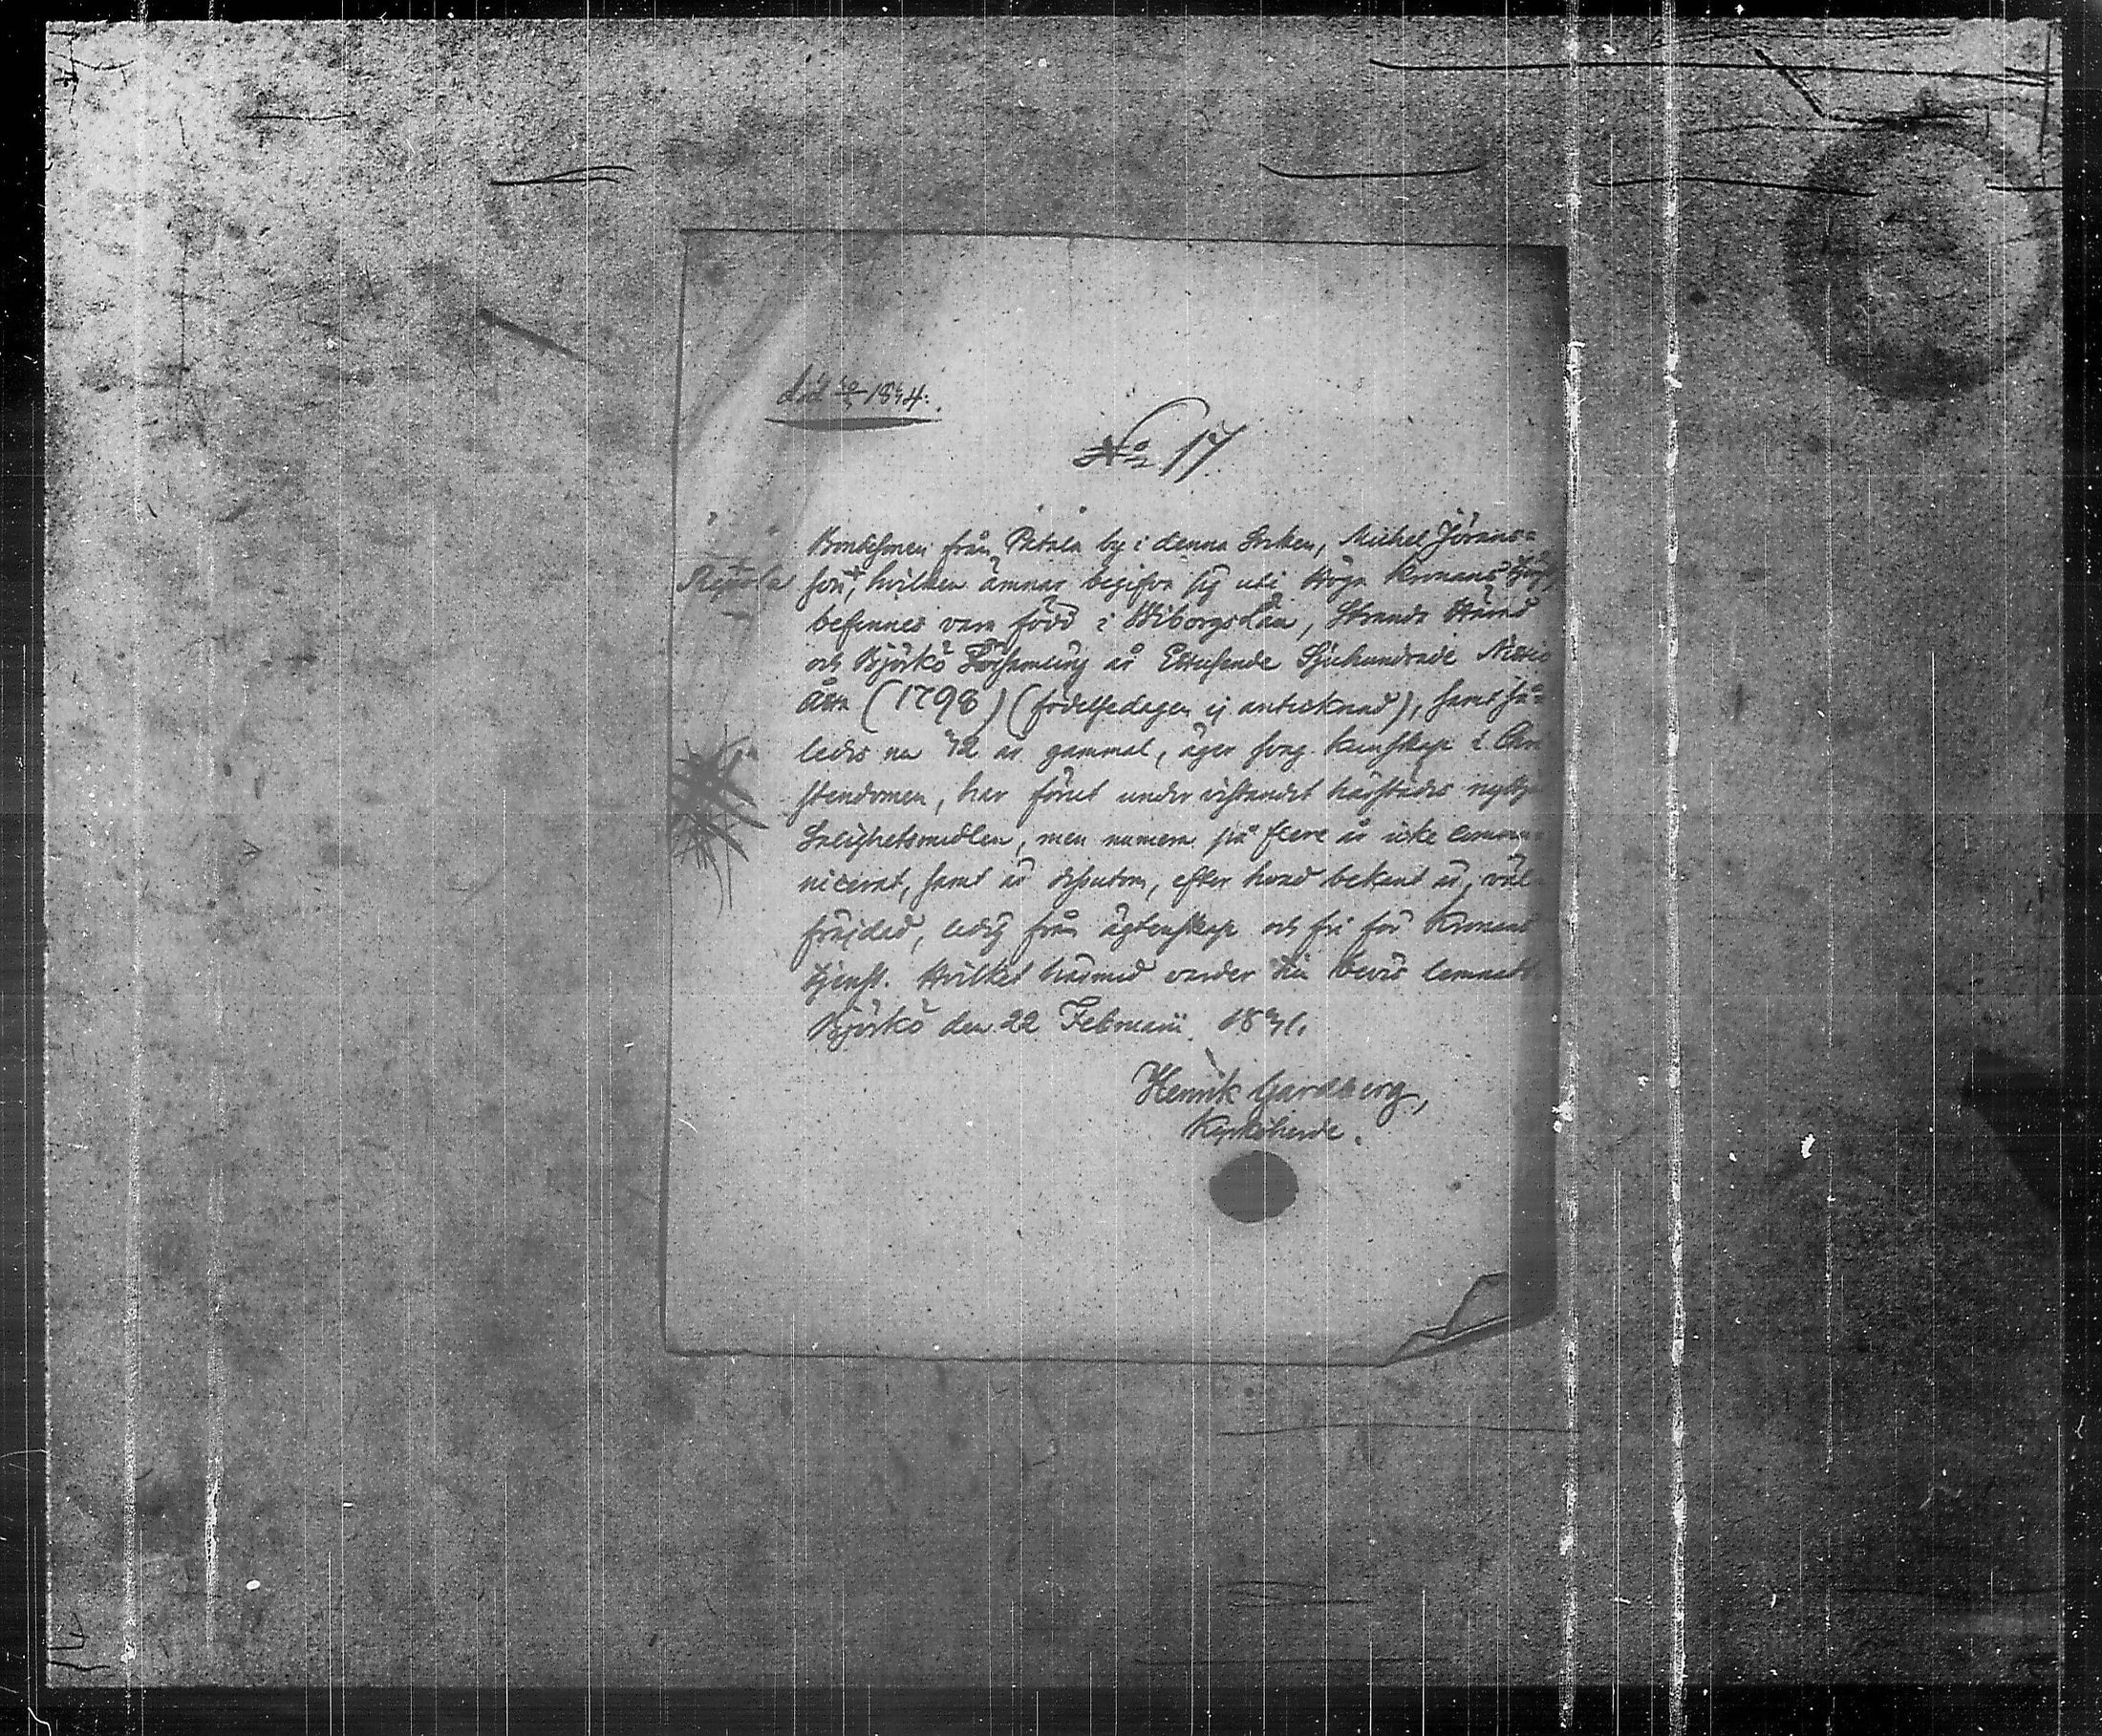 död 1844.
No 17
Bondesonen från Patala by i denna Socken, Michel Jörans=
son, hvilken ämnar begifva sig uti Höga Kronans
befinnes vara född i Wiborgs Län, Stranda Härad
och Björkö Församling år Ettusende Sjuhundrade Nittio
åtta (1798) (födelsedagen ej antecknad), samt så=
ledes nu 42 år gammal, äger svag kunskap i Chri
stendomen, har förut under vistandet härstädes nyttjat
Salighetsmedlen, men numera på flere år icke commu=
nicerat, samt är dessutom, efter hvad bekant är, väl=
fräjdad, ledig från ägtenskap och fri för Kronans
tjenst. Hvilket härmed varder till bevis lemnadt.
Björkö den 22 Februarii 1841.
Henrik Gardberg,
Kyrkoherde.